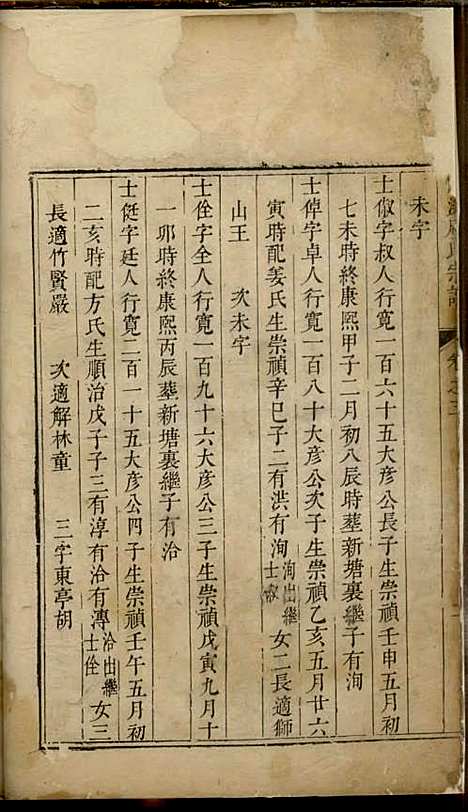 氏宗譜 卷之三
未字
士俶字叔人行寬一百六十五大彥公長子生崇禎壬申五月初
七未時終康熙甲子二月初八辰時葬新塘裏繼子有洵
士倬字卓人行寬一百八十大彥公次子生崇禎乙亥五月廿六
寅時配姜氏生崇禎辛巳子二有洪有洵洵出繼士俶女二長適獅
山王 次未字
士佺字全人行寬一百九十六大彥公三子生崇禎戊寅九月十
一卯時終康熙丙辰葬新塘裏繼子有洽
士侹字廷人行寬二百一十五大彥公四子生崇禎壬午五月初
二亥時配方氏生順治戊子子三有淳有洽有溥洽出繼士佺女三
長適竹賢嚴 次適解林童 三字東亭胡